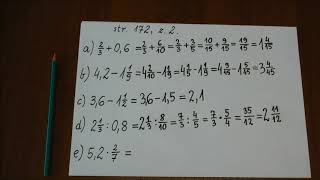 str. 172, z. 2.
a) 2/3 + 0,6 = 2/3 + 6/10 = 2/3 + 3/5 = 10/15 + 9/15 = 19/15 = 1 4/15
b) 4,2 - 1 1/5 = 4 2/10 - 1 1/5 = 4 1/5 - 1 1/5 =
c) 3,6 - 1 1/2 = 3,6 - 1,5 = 2,1
d) 2 1/3 : 0,8 = 2 1/3 : 8/10 = 7/3 : 4/5 = 7/3 · 5/4 = 35/12 = 2 11/12
e) 5,2 · 2/7 =